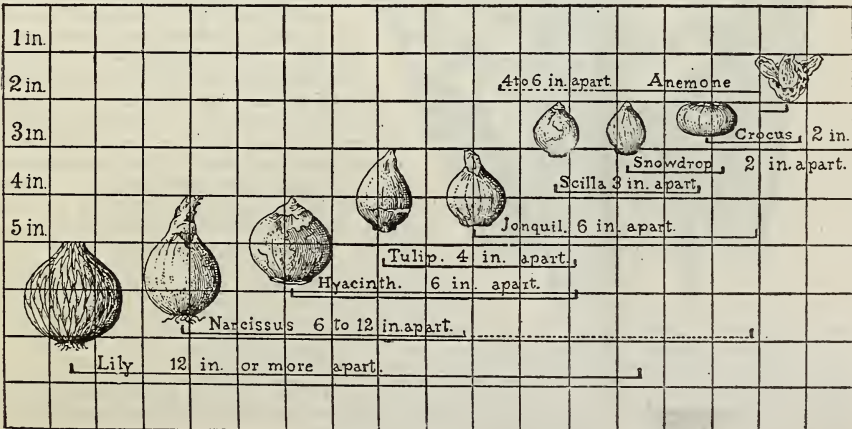 1 in.
2 in.
4 to 6 in. apart. Anemone
3 in.
Crocus 2 in.
Snowdrop 2 in. apart.
4 in.
Scilla 3 in. apart.
5 in.
Jonquil. 6 in. apart.
Tulip. 4 in. apart.
Hyacinth. 6 in. apart.
Narcissus 6 to 12 in. apart.
Lily 12 in. or more apart.